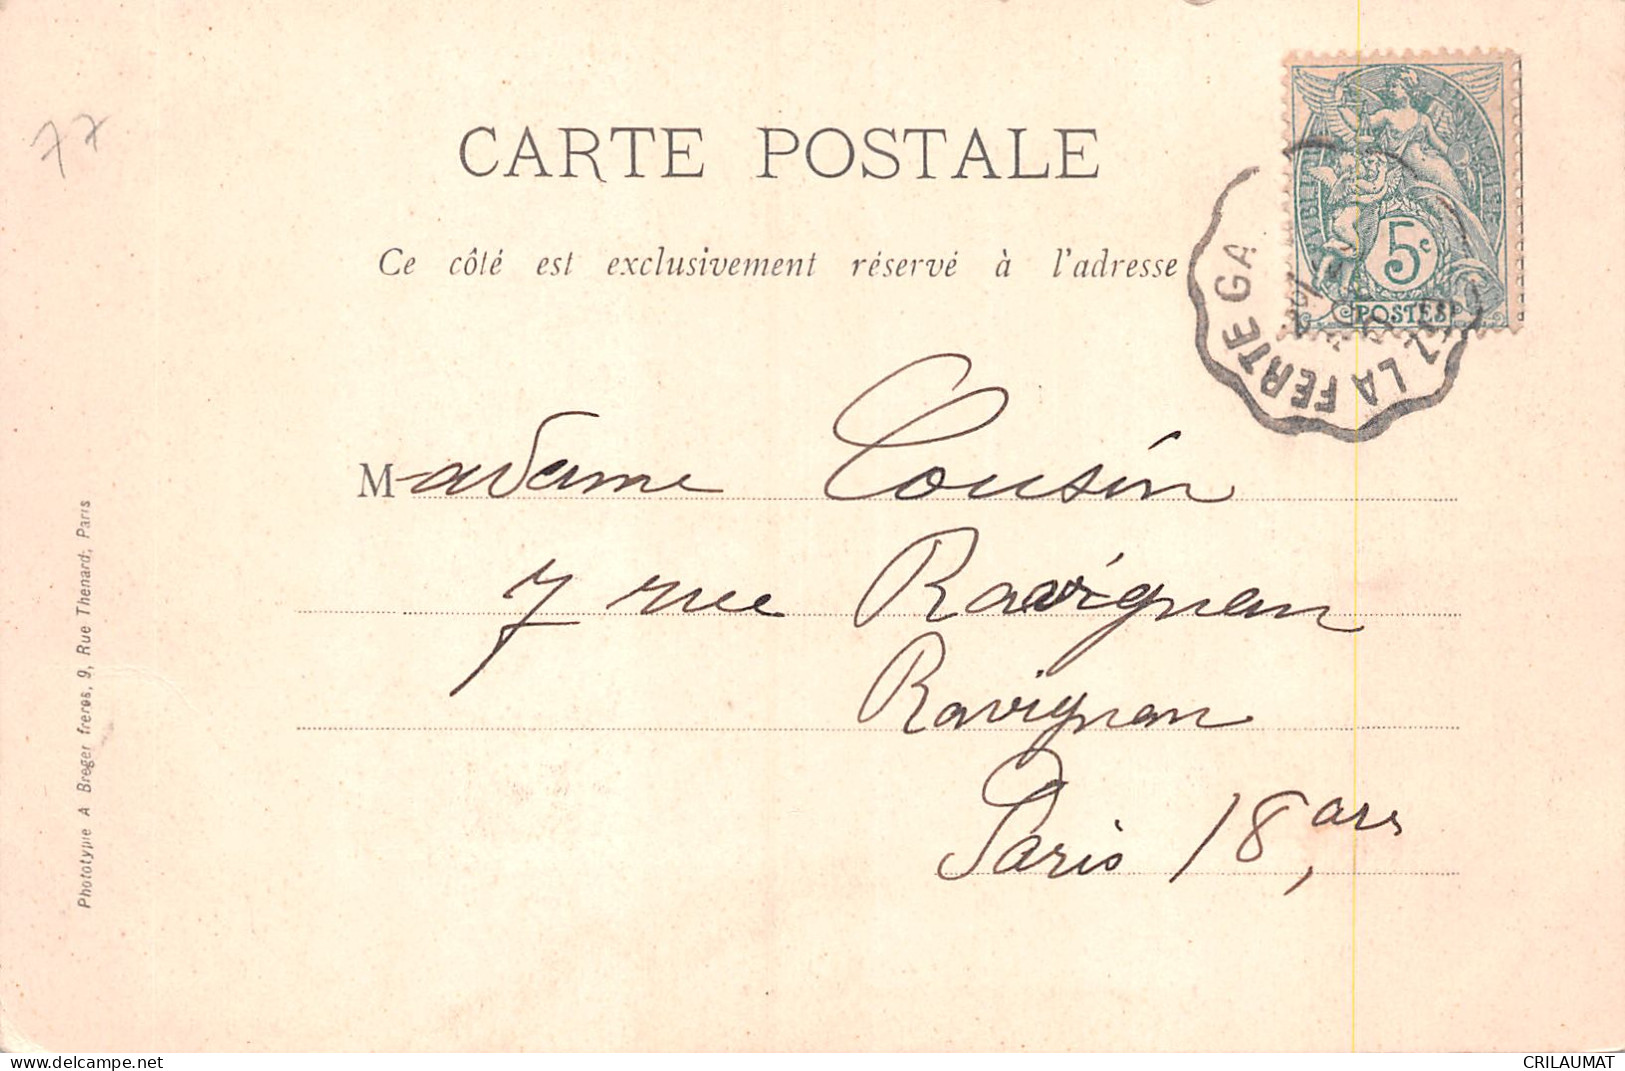 77
CARTE POSTALE
Ce côté est exclusivement réservé à l'adresse
5c
POSTES
LA FERTE GA
Madame Cousin
7 rue Ravignan
Ravignan
Paris 18, arr
Phototypie A Breger freres, 9, Rue Thenard, Paris
https://www.delcampe.net
CRILAUMAT